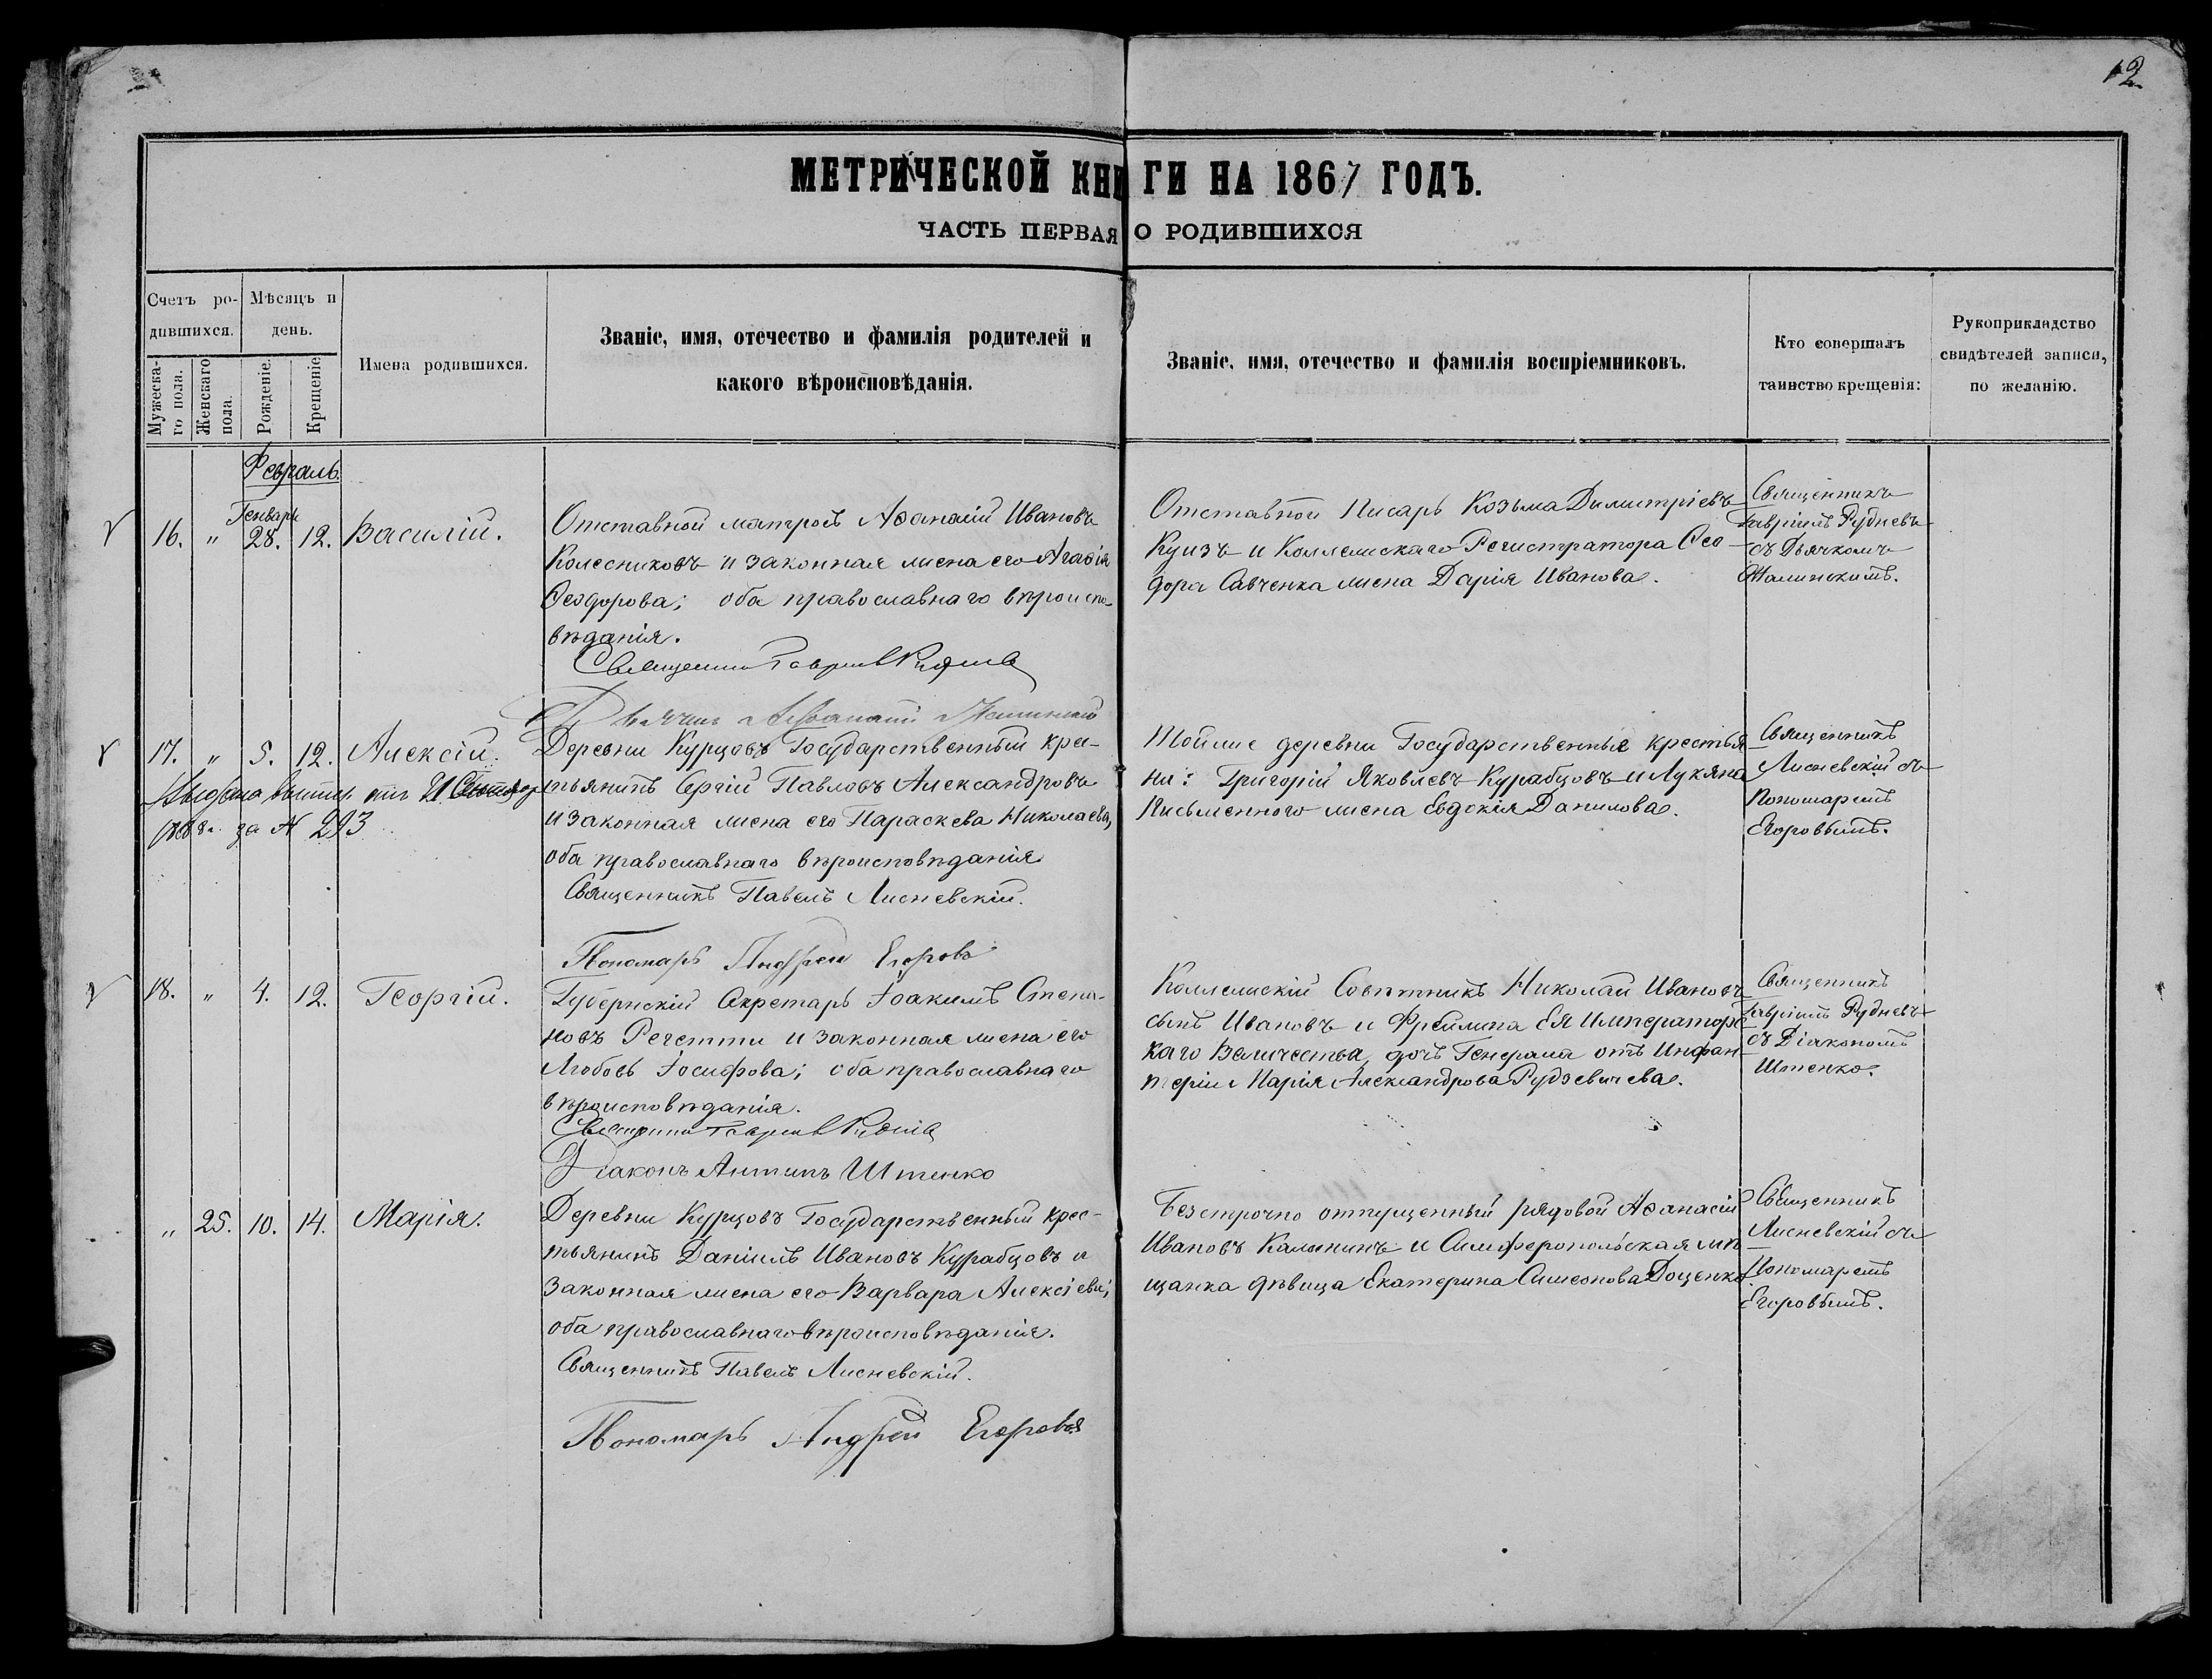 12
МЕТРИЧЕСКОЙ КНИГИ НА 1867 ГОДЪ.
ЧАСТЬ ПЕРВАЯ О РОДИВШИХСЯ
Счетъ ро-
дившихся.
Мужеска-
го пола.
Женскаго
пола.
Мѣсяцъ и
день.
Рожденіе.
Крещеніе
Имена родившихся.
Званіе, имя, отечество и фамилія родителей и
какого вѣроисповѣданія.
Званіе, имя, отечество и фамилія воспріемниковъ.
Кто совершалъ
таинство крещенія:
Рукоприкладство
свидѣтелей записи,
по желанію.
Февраль.
Генварь
16. " 28. 12. Василій.
Отставной матросъ Аѳанасій Ивановъ
Колесниковъ и законная жена его Агаѳія
Ѳеодорова; оба православнаго вѣроиспо-
вѣданія.
Священникъ Гавріилъ Рудневъ
Дьячекъ Аѳанасій
Отставной Писарь Козьма Димитріевъ
Куизъ и Коллежскаго Регистратора Ѳео-
дора Савченка жена Дарія Иванова.
Священникъ
Гавріилъ Рудневъ
съ Дьячкомъ
17. " 5. 12. Алексій.
Выдана
1888 г. за № 293
Деревни Курцовъ Государственный крес-
тьянинъ Сергій Павловъ Александровъ
и законная жена его Параскева Николаева,
оба православнаго вѣроисповѣданія
Священникъ Павелъ Лисневскій.
Пономарь Андрей Егоровъ
Тойже деревни Государственные крестья-
не: Григорій Яковлевъ Курабцовъ и Лукяна
Письменного жена Евдокія Данилова.
Священникъ
Лисневскій съ
Пономаремъ
Егоровымъ.
18. " 4. 12. Георгій.
Губернскій Секретарь Іоакимъ Степа-
новъ Регетти и законная жена его
Любовь Іосифова; оба православнаго
вѣроисповѣданія.
Священникъ Гавріилъ Рудневъ
Діаконъ Антипъ Штенко
Коллежскій Совѣтникъ Николай Ивановъ
сынъ Ивановъ и Фрейлина Ея Императорс-
каго Величества, дочь Генерала отъ Инфан-
теріи Марія Александрова Рудзевичева.
Священникъ
Гавріилъ Рудневъ
съ Діакономъ
Штенко.
" 25. 10. 14. Марія.
Деревни Курцовъ Государственный крес-
тьянинъ Даніилъ Ивановъ Курабцовъ и
законная жена его Варвара Алексіева;
оба православнаго вѣроисповѣданія.
Священникъ Павелъ Лисневскій.
Пономарь Андрей Егоровъ
Безсрочно отпущенный рядовой Аѳанасій
Ивановъ Калининъ и Симферопольская мѣ-
щанка дѣвица Екатерина Симеонова Доценкова.
Священникъ
Лисневскій съ
Пономаремъ
Егоровымъ.